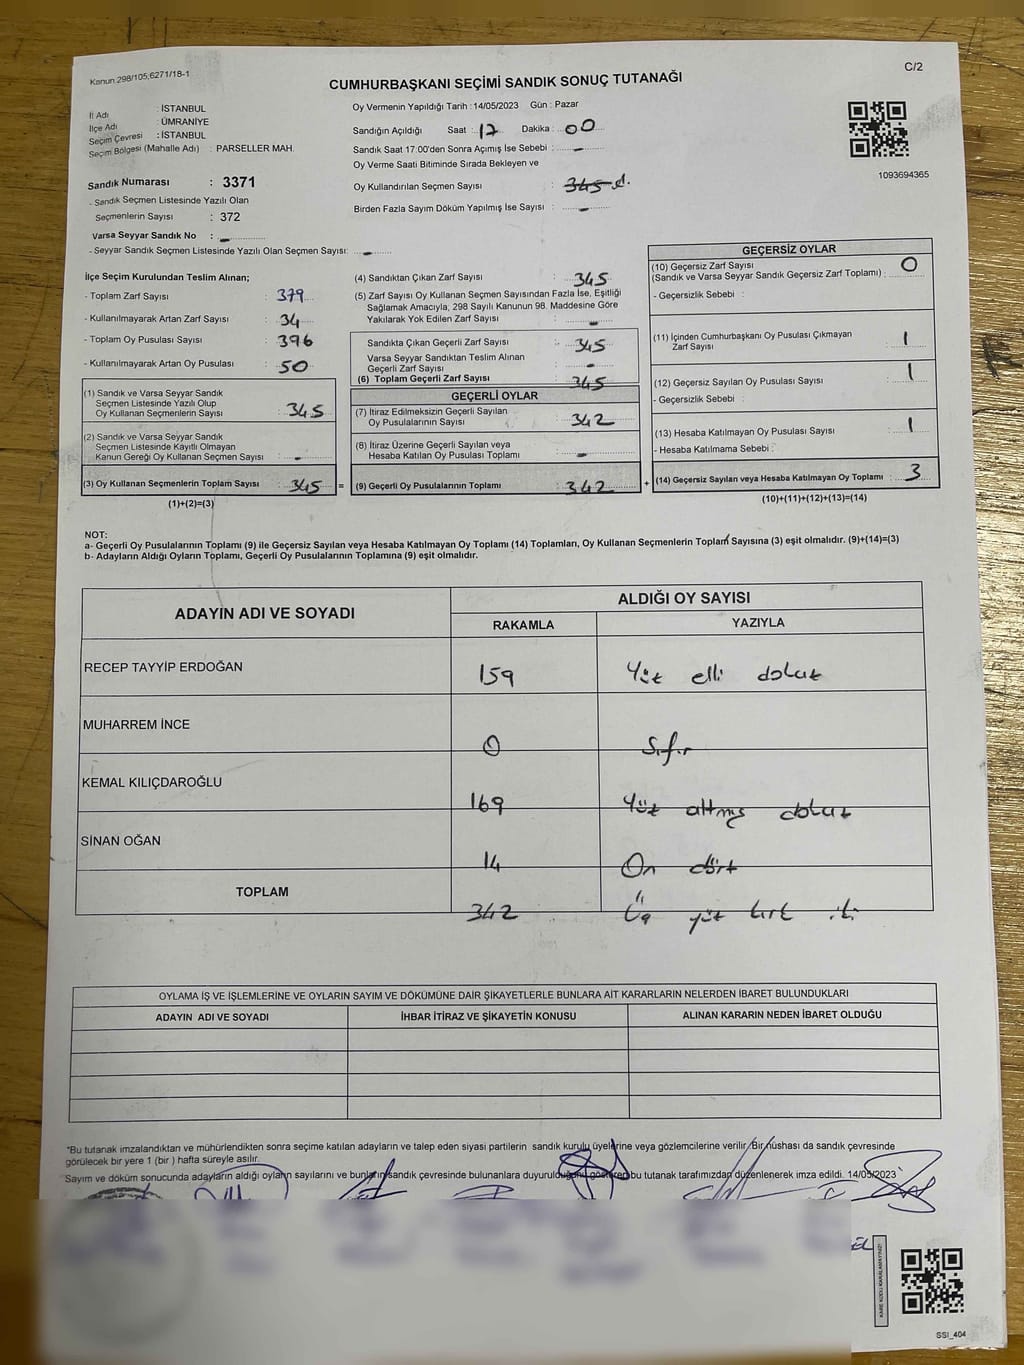 Kanun 298/105,6271/18-1
C/2
CUMHURBAŞKANI SEÇİMİ SANDIK SONUÇ TUTANAĞI
İl Adı : İSTANBUL
İlçe Adı : ÜMRANİYE
Seçim Çevresi : İSTANBUL
Seçim Bölgesi (Mahalle Adı) : PARSELLER MAH.
Sandık Numarası : 3371
- Sandık Seçmen Listesinde Yazılı Olan
Seçmenlerin Sayısı : 372
Varsa Seyyar Sandık No : -
- Seyyar Sandık Seçmen Listesinde Yazılı Olan Seçmen Sayısı: -
Oy Vermenin Yapıldığı Tarih : 14/05/2023 Gün : Pazar
Sandığın Açıldığı Saat : 17 Dakika : 00
Sandık Saat 17:00'den Sonra Açımış İse Sebebi : -
Oy Verme Saati Bitiminde Sırada Bekleyen ve
Oy Kullandırılan Seçmen Sayısı : 345
Birden Fazla Sayım Döküm Yapılmış İse Sayısı : -
1093694365
İlçe Seçim Kurulundan Teslim Alınan;
- Toplam Zarf Sayısı : 379
- Kullanılmayarak Artan Zarf Sayısı : 34
- Toplam Oy Pusulası Sayısı : 396
- Kullanılmayarak Artan Oy Pusulası : 50
(1) Sandık ve Varsa Seyyar Sandık
Seçmen Listesinde Yazılı Olup
Oy Kullanan Seçmenlerin Sayısı : 345
(2) Sandık ve Varsa Seyyar Sandık
Seçmen Listesinde Kayıtlı Olmayan
Kanun Gereği Oy Kullanan Seçmen Sayısı : -
(3) Oy Kullanan Seçmenlerin Toplam Sayısı : 345 =
(1)+(2)=(3)
(4) Sandıktan Çıkan Zarf Sayısı : 345
(5) Zarf Sayısı Oy Kullanan Seçmen Sayısından Fazla İse, Eşitliği
Sağlamak Amacıyla, 298 Sayılı Kanunun 98. Maddesine Göre
Yakılarak Yok Edilen Zarf Sayısı : -
Sandıkta Çıkan Geçerli Zarf Sayısı : 345
Varsa Seyyar Sandıktan Teslim Alınan
Geçerli Zarf Sayısı : -
(6) Toplam Geçerli Zarf Sayısı : 345
GEÇERLİ OYLAR
(7) İtiraz Edilmeksizin Geçerli Sayılan
Oy Pusulalarının Sayısı : 342
(8) İtiraz Üzerine Geçerli Sayılan veya
Hesaba Katılan Oy Pusulası Toplamı : -
(9) Geçerli Oy Pusulalarının Toplamı : 342 +
GEÇERSİZ OYLAR
(10) Geçersiz Zarf Sayısı
(Sandık ve Varsa Seyyar Sandık Geçersiz Zarf Toplamı) : 0
- Geçersizlik Sebebi :
(11) İçinden Cumhurbaşkanı Oy Pusulası Çıkmayan
Zarf Sayısı : 1
(12) Geçersiz Sayılan Oy Pusulası Sayısı : 1
- Geçersizlik Sebebi :
(13) Hesaba Katılmayan Oy Pusulası Sayısı : 1
- Hesaba Katılmama Sebebi :
(14) Geçersiz Sayılan veya Hesaba Katılmayan Oy Toplamı : 3
(10)+(11)+(12)+(13)=(14)
NOT:
a- Geçerli Oy Pusulalarının Toplamı (9) ile Geçersiz Sayılan veya Hesaba Katılmayan Oy Toplamı (14) Toplamları, Oy Kullanan Seçmenlerin Toplam Sayısına (3) eşit olmalıdır. (9)+(14)=(3)
b- Adayların Aldığı Oyların Toplamı, Geçerli Oy Pusulalarının Toplamına (9) eşit olmalıdır.
ADAYIN ADI VE SOYADI
ALDIĞI OY SAYISI
RAKAMLA YAZIYLA
RECEP TAYYİP ERDOĞAN 159 Yüz elli dokuz
MUHARREM İNCE 0 Sıfır
KEMAL KILIÇDAROĞLU 169 Yüz altmış dokuz
SİNAN OĞAN 14 On dört
TOPLAM 342 Üç yüz kırk iki
OYLAMA İŞ VE İŞLEMLERİNE VE OYLARIN SAYIM VE DÖKÜMÜNE DAİR ŞİKAYETLERLE BUNLARA AİT KARARLARIN NELERDEN İBARET BULUNDUKLARI
ADAYIN ADI VE SOYADI İHBAR İTİRAZ VE ŞİKAYETİN KONUSU ALINAN KARARIN NEDEN İBARET OLDUĞU
*Bu tutanak imzalandıktan ve mühürlendikten sonra seçime katılan adayların ve talep eden siyasi partilerin sandık kurulu üyelerine veya gözlemcilerine verilir. Bir nüshası da sandık çevresinde
görülecek bir yere 1 (bir ) hafta süreyle asılır.
Sayım ve döküm sonucunda adayların aldığı oyların sayılarını ve bunların sandık çevresinde bulunanlara duyurulduğunu gösteren bu tutanak tarafımızdan düzenlenerek imza edildi. 14/05/2023
SSİ_404